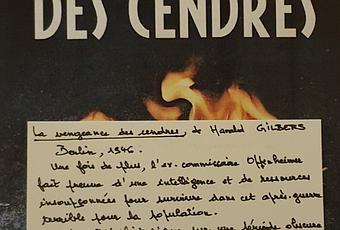 DES CENDRES
La vengeance des cendres, de Harald GILBERS
Berlin, 1946.
Une fois de plus, l'ex. commissaire Oppenheimer
fait preuve d'une intelligence et de ressources
insoupçonnées pour survivre dans cet après-guerre
terrible pour la population.
sur une période obscure